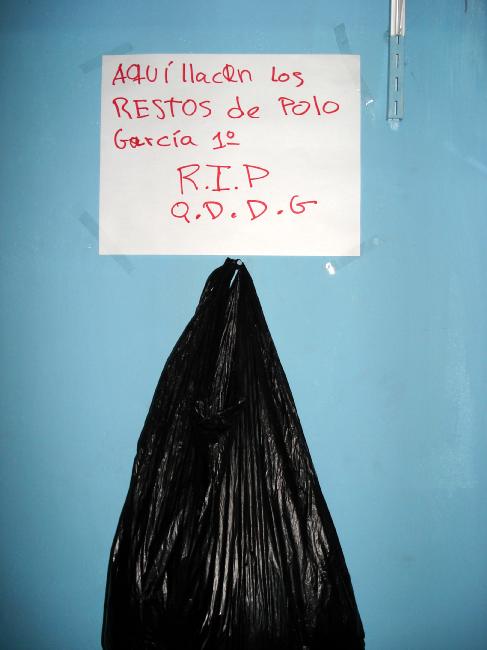 AQUí llacen los
RESTOS de POLO
García 1º
R.I.P
Q.D.D.G